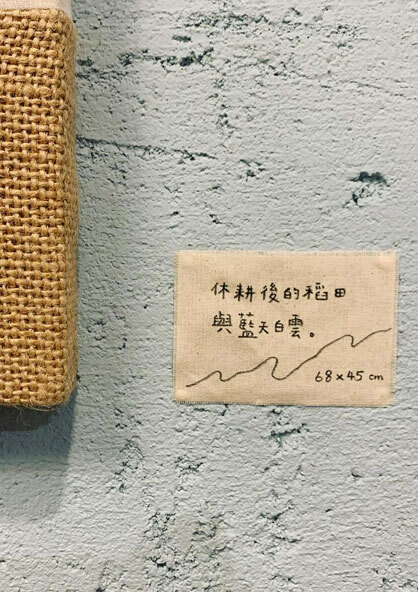 休耕後的稻田
與藍天白雲。
68×45 cm